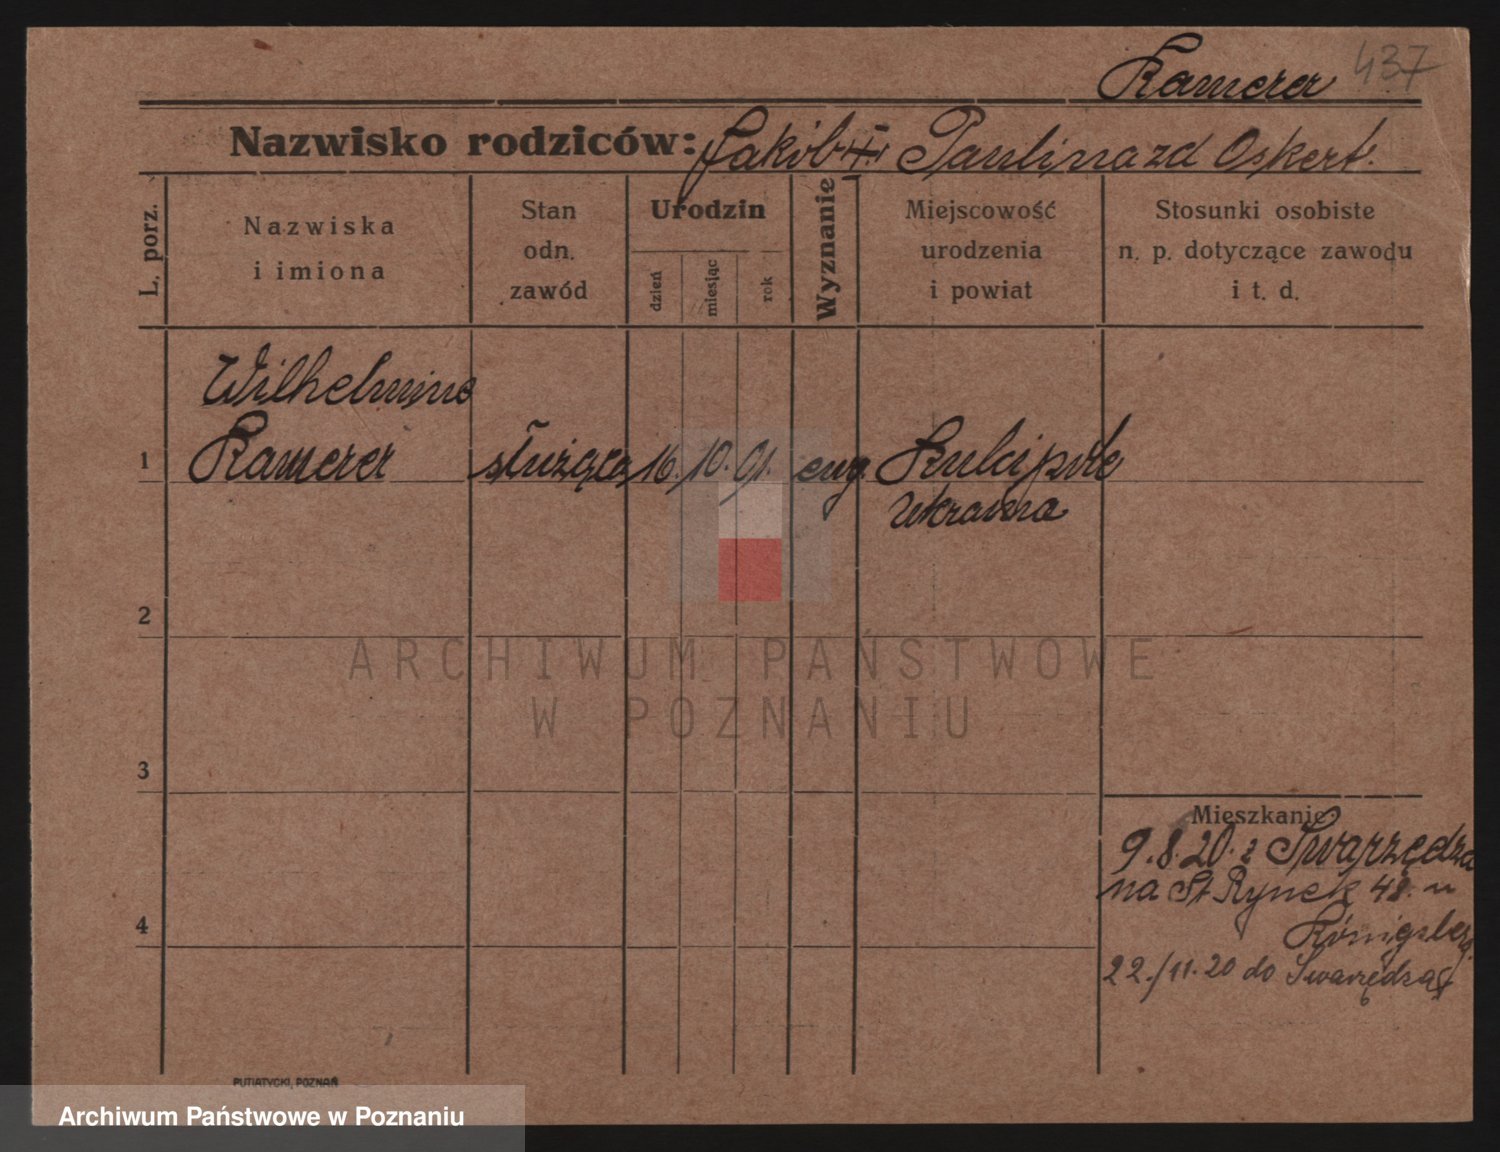 Kamerer 437
Nazwisko rodziców: Jakób Paulina zd Oskert.
L. porz.
Nazwiska
i imiona
Stan
odn.
zawód
Urodzin
dzień
miesiąc
rok
Wyznanie
Miejscowość
urodzenia
i powiat
Stosunki osobiste
n. p. dotyczące zawodu
i t. d.
Wilhelmine
1 Kamerer służąca 16. 10. 91. ewg.
Ukraina
2
ARCHIWUM PAŃSTWOWE
W POZNANIU
3
Mieszkanie
9.8.20. z Swarzędza
na St Rynek 48. u
4 Königsberg
22./11.20 do Swarzędza
PUTIATYCKI, POZNAŃ
Archiwum Państwowe w Poznaniu